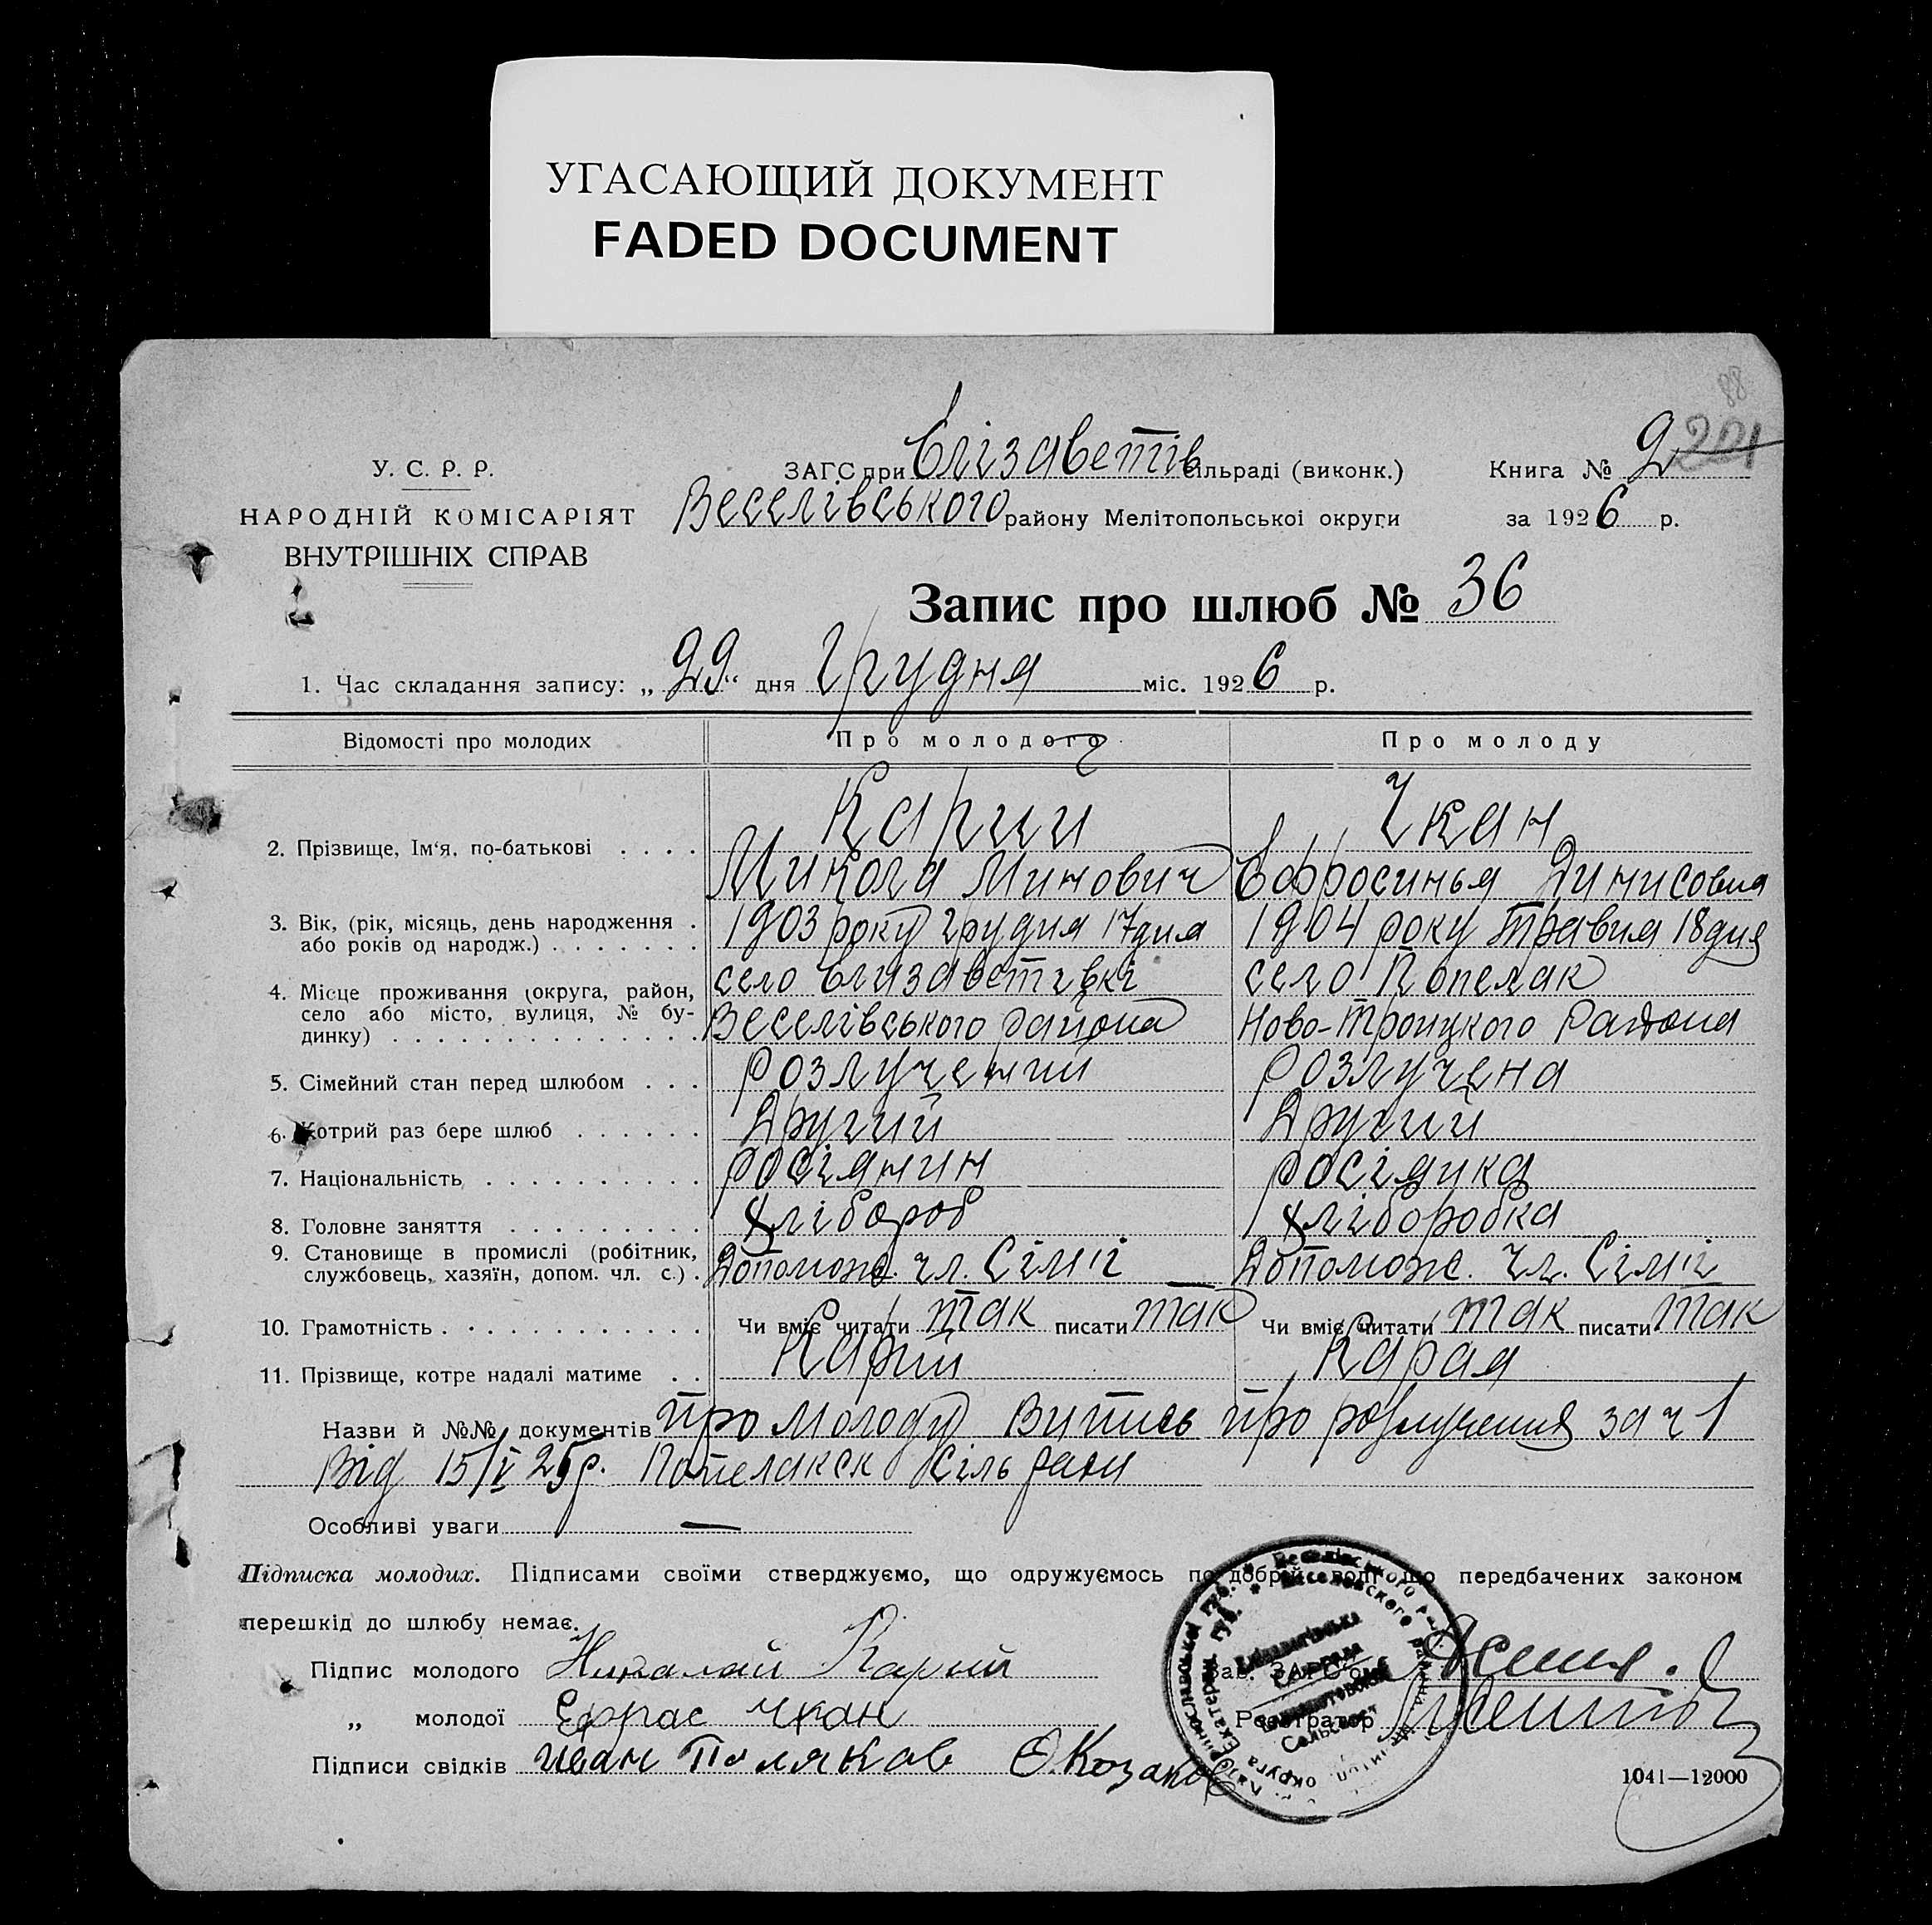 УГАСАЮЩИЙ ДОКУМЕНТ
FADED DOCUMENT
88
221
У. С. Р. Р.
НАРОДНІЙ КОМІСАРІЯТ
ВНУТРІШНІХ СПРАВ
ЗАГС при Єлізаветів сільраді (виконк.)
Веселівського району Мелітопольської округи
Книга № 2
за 1926 р.
Запис про шлюб № 36
1. Час складання запису: „29“ дня Грудня міс. 1926 р.
Відомості про молодих Про молодого Про молоду
2. Прізвище, Ім'я, по-батькові . . . . Карий Чкан
Микола Минович Єфросинья Динисовна
3. Вік, (рік, місяць, день народження . 1903 року грудня 17 дня 1904 року травня 18 дня
або років од народж.) . . . . . . .
4. Місце проживання (округа, район, село Єлизаветівкі село Попелак
село або місто, вулиця, № бу-
динку) . . . . . . . . . . . . . . Веселівського района Ново-Троицкого Района
5. Сімейний стан перед шлюбом . . . розлучений розлучена
6. Котрий раз бере шлюб . . . . . . Другий Другий
7. Національність . . . . . . . . . . росіянин росіянка
8. Головне заняття . . . . . . . . . хлібороб хліборобка
9. Становище в промислі (робітник,
службовець, хазяїн, допом. чл. с.) . Допомож. чл. Сімїі Допомож. чл. Сімїі
10. Грамотність . . . . . . . . . . . Чи вміє читати так писати так Чи вміє читати так писати так
11. Прізвище, котре надалі матиме . . Карий Карая
Назви й №№ документів про молоду Випись про розлучення за ч 1
Від 15/I 25р. Попелакск Сільради
Особливі уваги —
Підписка молодих. Підписами своїми стверджуємо, що одружуємось по добрій волі що передбачених законом
перешкід до шлюбу немає.
Підпис молодого Николай Карий
Зав. ЗАГС'ом
„ молодої Ефрас Чкан
Реєстратор
Підписи свідків Иван Поляков О. Козаков
1041—12000